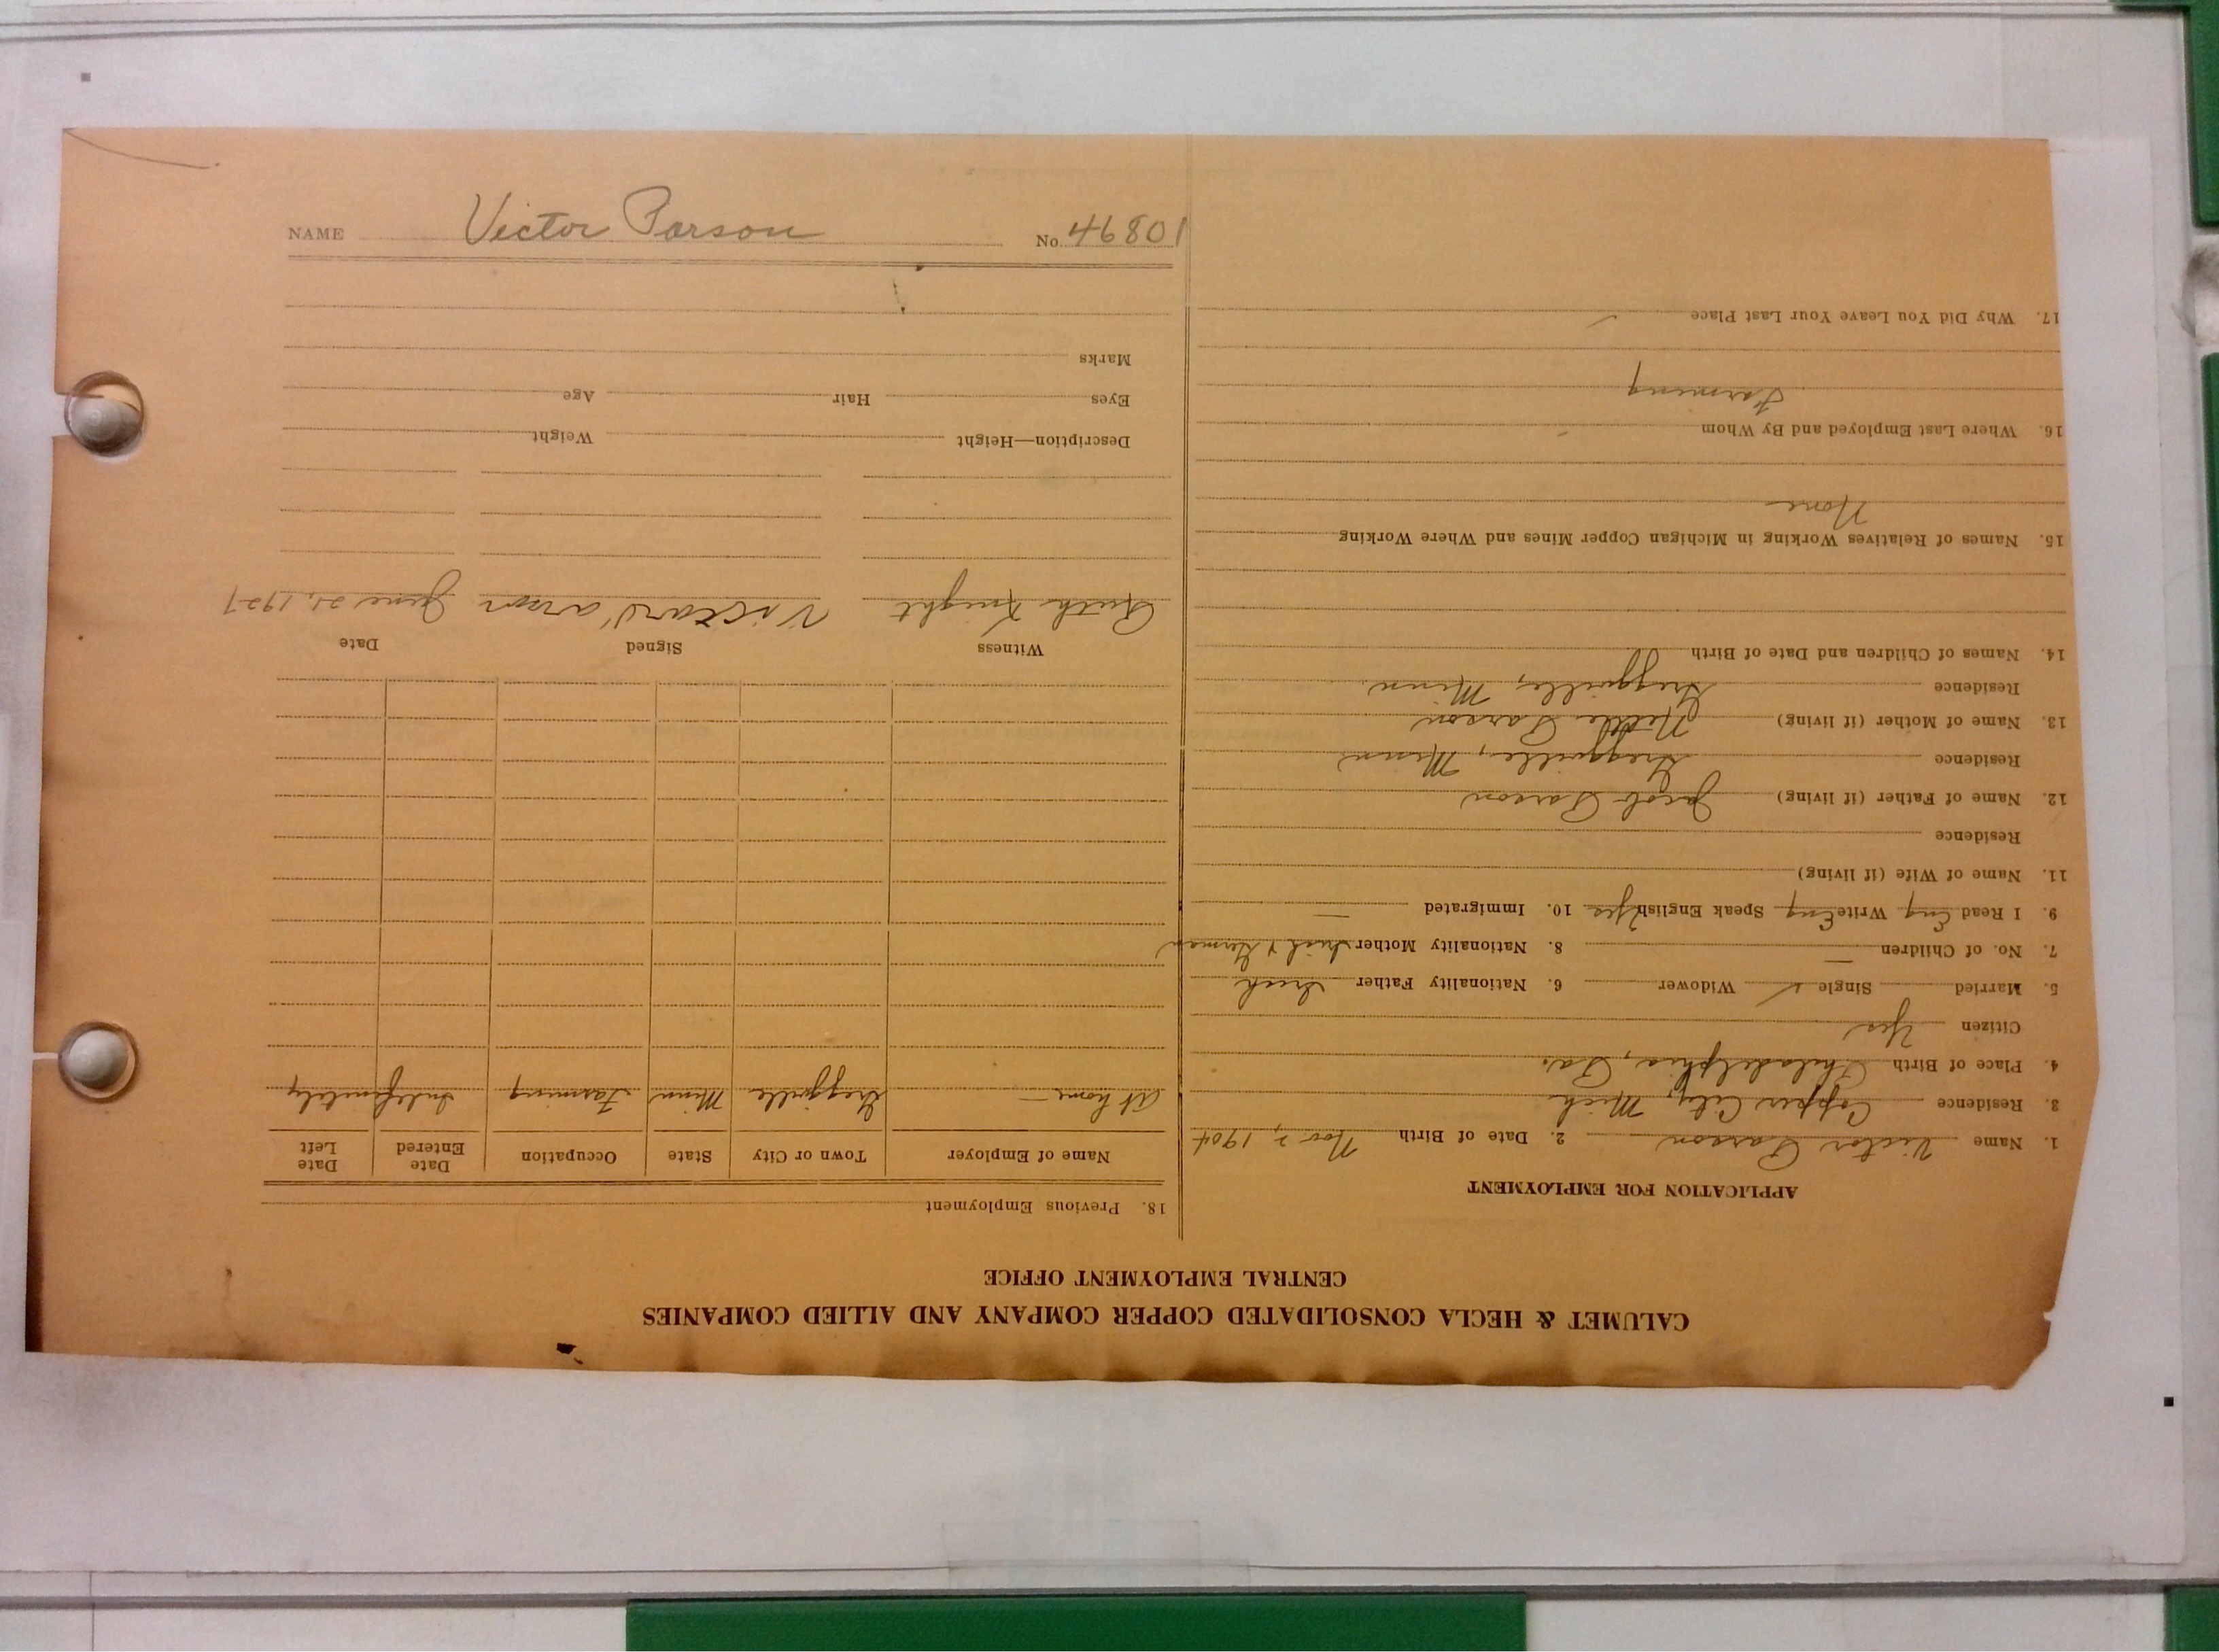 NAME Victor Parson No. 46801
CALUMET & HECLA CONSOLIDATED COPPER COMPANY AND ALLIED COMPANIES
CENTRAL EMPLOYMENT OFFICE
APPLICATION FOR EMPLOYMENT
1. Name Victor Parson 2. Date of Birth Nov 2, 1904
3. Residence Copper City, Mich
4. Place of Birth Philadelphia, Pa.
Citizen Yes
5. Married Single ✓ Widower 6. Nationality Father Irish
7. No. of Children — 8. Nationality Mother Irish & German
9. I Read Eng Write Eng Speak English Yes 10. Immigrated —
11. Name of Wife (if living)
Residence
12. Name of Father (if living) Jacob Parson
Residence Greggville, Minn
13. Name of Mother (if living) Nettie Parson
Residence Greggville, Minn.
14. Names of Children and Date of Birth
15. Names of Relatives Working in Michigan Copper Mines and Where Working
None
16. Where Last Employed and By Whom
Farming
17. Why Did You Leave Your Last Place
18. Previous Employment
Name of Employer Town or City State Occupation Date Entered Date Left
At home — Greggville Minn Farming Indefinitely
Witness Signed Date
Ruth Knight Victor Parson June 21, 1927
Description—Height Weight
Eyes Hair Age
Marks